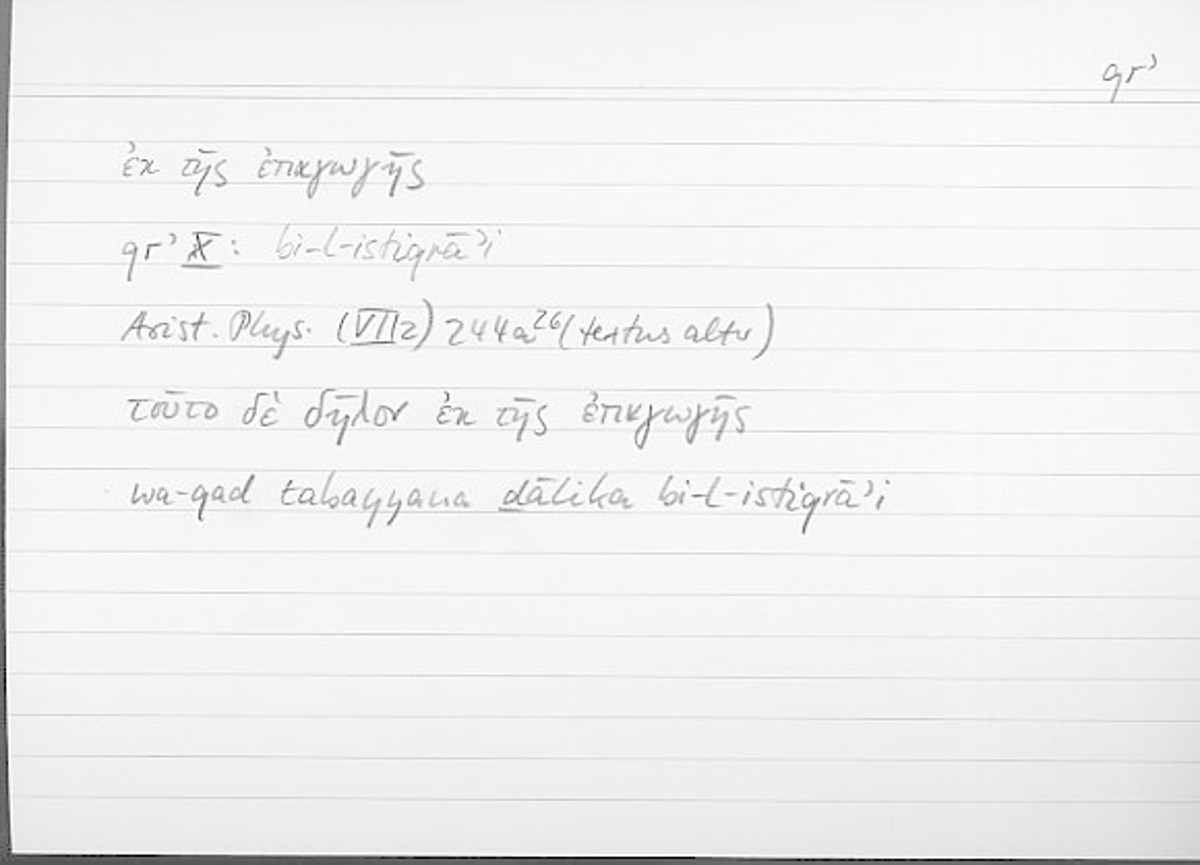 qrʾ
ἐκ τῆς ἐπαγωγῆς
qrʾ X: bi-l-istiqrāʾi
Arist. Phys. (VII2) 244a26 (textus alter)
τοῦτο δὲ δῆλον ἐκ τῆς ἐπαγωγῆς
wa-qad tabayyana ḏālika bi-l-istiqrāʾi